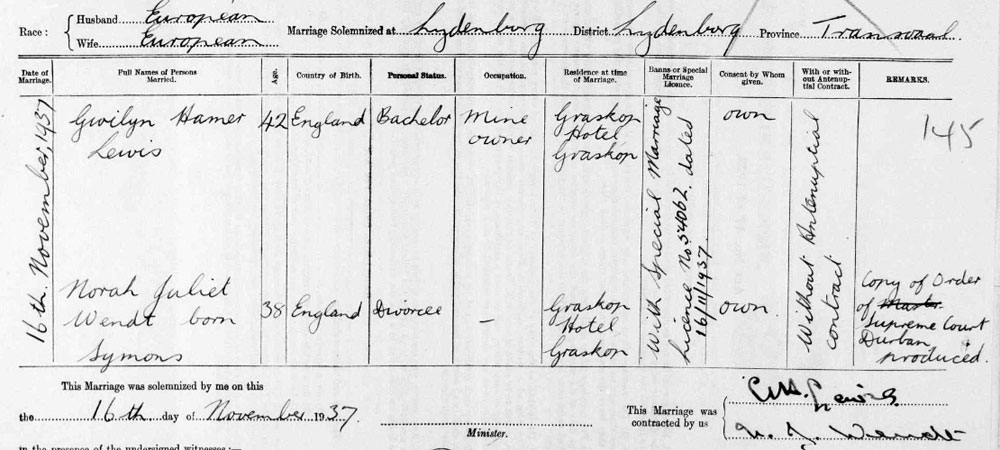 Race : Husband European
Wife European
Marriage Solemnized at Lydenburg District Lydenburg Province Transvaal.
Date of Marriage. Full Names of Persons Married. Age. Country of Birth. Personal Status. Occupation. Residence at time of Marriage. Banns or Special Marriage Licence. Consent by Whom given. With or without Antenuptial Contract. REMARKS.
16th November, 1937
Gwilyn Hamer
Lewis
42
England
Bachelor
Mine
owner
Graskop
Hotel
Graskop
With Special Marriage
Licence No. 54062. dated
16/11/1937
own
Without Antenuptial
contract
145
Norah Juliet
Wendt born
Symons
38
England
Divorcee
-
Graskop
Hotel
Graskop
own
Copy of Order
of
Supreme Court
Durban
produced.
This Marriage was solemnized by me on this
the 16th day of November 1937.
Minister.
This Marriage was
contracted by us
G.H. Lewis.
N. J. Wendt
in the presence of the undersigned witnesses :—